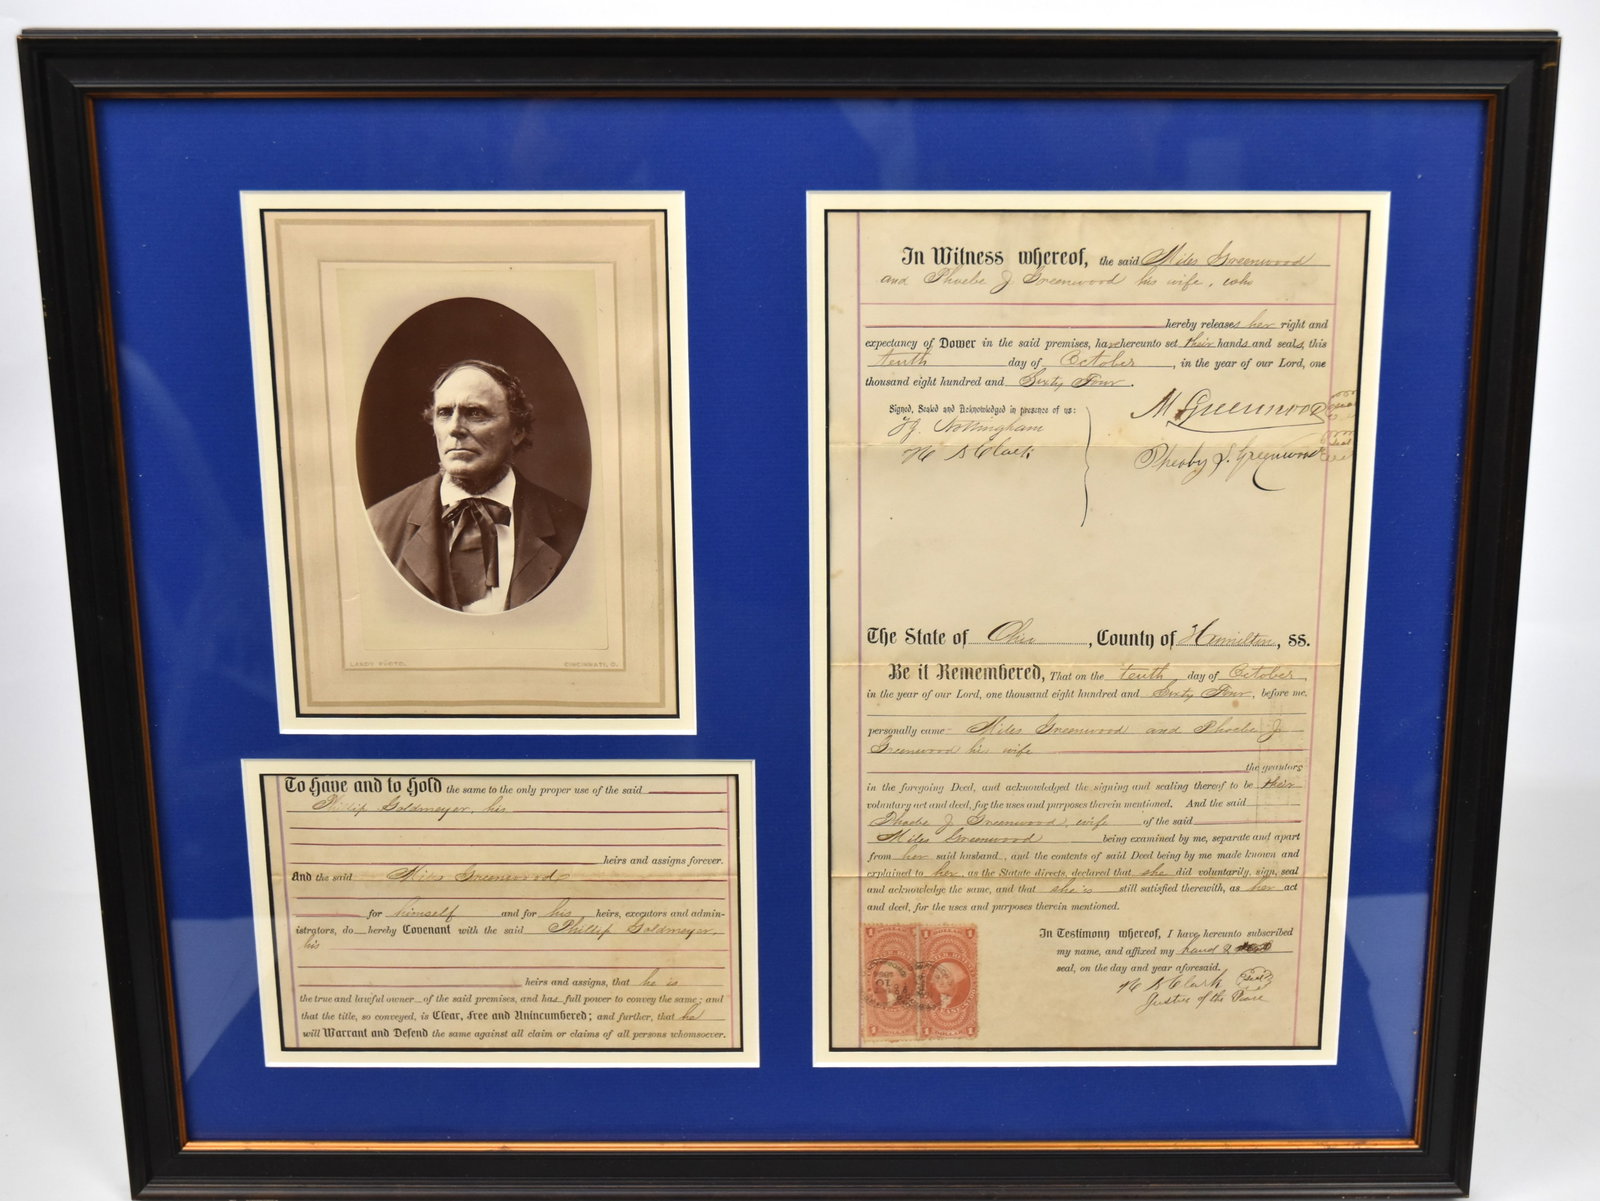 LANDY PHOTO. CINCINNATI, O.
To Have and to Hold the same to the only proper use of the said
Phillip Goldmeyer, his
heirs and assigns forever.
And the said Miles Greenwood
for himself and for his heirs, executors and admin-
istrators, do hereby Covenant with the said Phillip Goldmeyer,
his
heirs and assigns, that he is
the true and lawful owner of the said premises, and has full power to convey the same; and
that the title, so conveyed, is Clear, Free and Unincumbered; and further, that he
will Warrant and Defend the same against all claim or claims of all persons whomsoever.
In Witness whereof, the said Miles Greenwood
and Phoebe J Greenwood his wife, who
hereby releases her right and
expectancy of Dower in the said premises, have hereunto set their hands and seals, this
tenth day of October, in the year of our Lord, one
thousand eight hundred and Sixty Four.
Signed, Sealed and Acknowledged in presence of us:
M Greenwood Seal
Nottingham
Clark
Pheoby J. Greenwood Seal
The State of Ohio, County of Hamilton, ss.
Be it Remembered, That on the tenth day of October,
in the year of our Lord, one thousand eight hundred and Sixty Four, before me,
personally came Miles Greenwood and Phoebe J
Greenwood his wife
the grantors
in the foregoing Deed, and acknowledged the signing and sealing thereof to be their
voluntary act and deed, for the uses and purposes therein mentioned. And the said
Phoebe J Greenwood, wife of the said
Miles Greenwood being examined by me, separate and apart
from her said husband, and the contents of said Deed being by me made known and
explained to her, as the Statute directs, declared that she did voluntarily sign, seal
and acknowledge the same, and that she is still satisfied therewith, as her act
and deed, for the uses and purposes therein mentioned.
In Testimony whereof, I have hereunto subscribed
my name, and affixed my hand &
seal, on the day and year aforesaid.
Clark Seal
Justice of the Peace
1 1 1 1
1 1 1 1